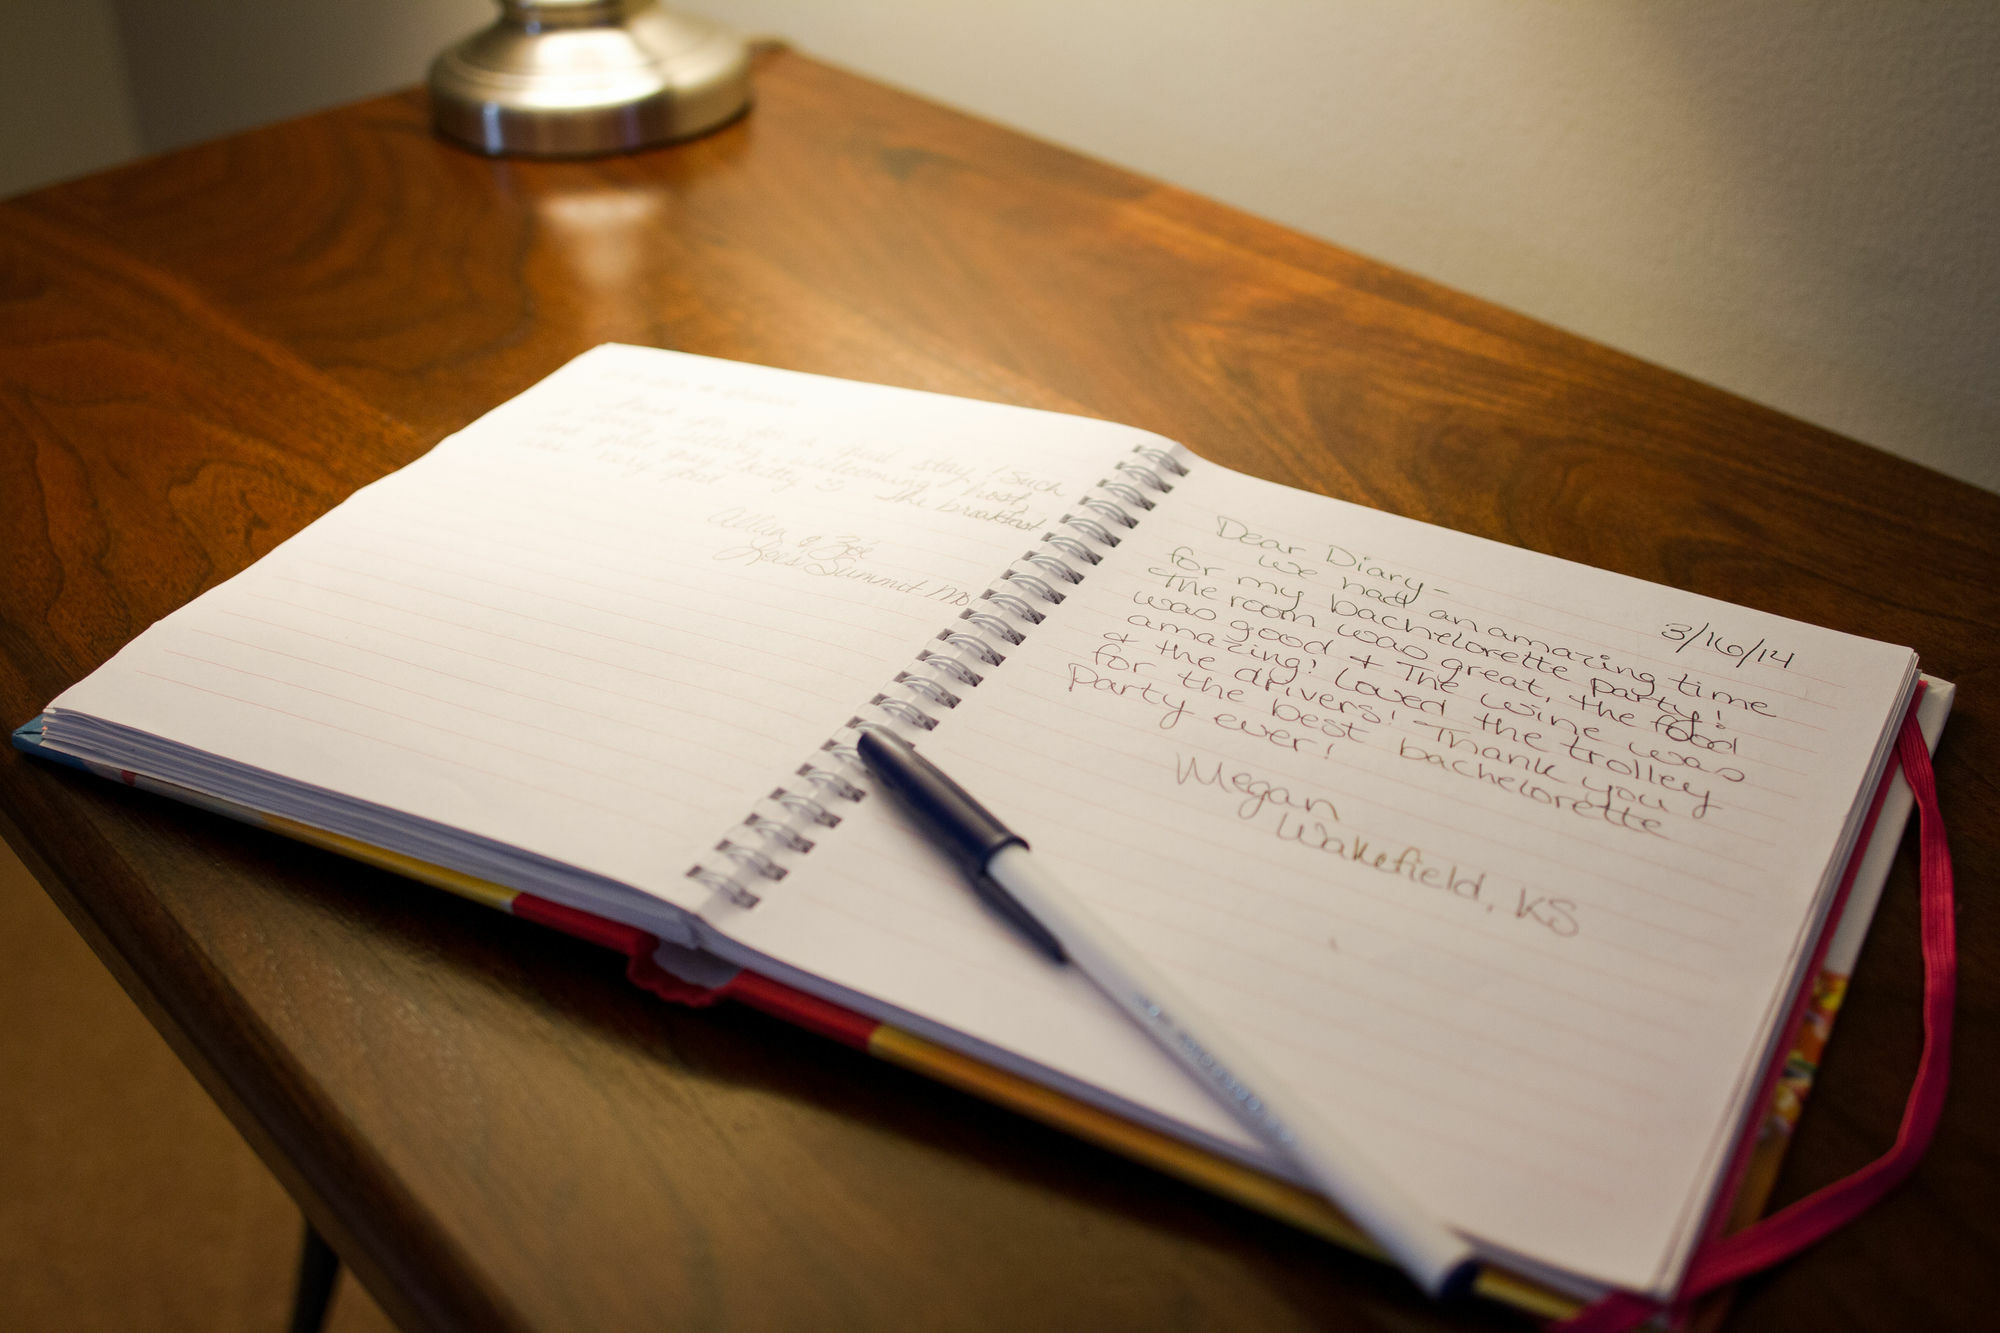 Thank you for a great stay! Such
a lovely, welcoming host,
and place
very good
The breakfast
Allen & Zoë
Lees Summit MO
3/16/14
Dear Diary-
We had an amazing time
for my bachelorette party!
The room was great, the food
was good & The wine was
amazing! Loved the trolley
& the drivers! Thank you
for the best bachelorette
party ever!
Megan
Wakefield, KS